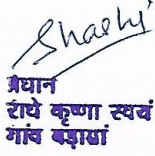 Shashi
प्रधान
राधे कृष्णा स्वयं
गांव बड़ाणां